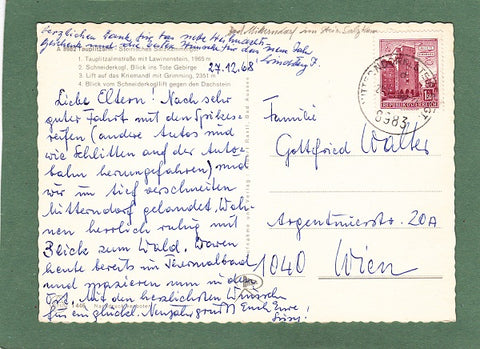 herzlichen Dank für das nette Weihnachts-
geschenk und alle besten Wünsche für das neue Jahr
Bad Mitterndorf im Stein. Salzkam
A 8982 Tauplitzalm Steirisches
1. Tauplitzalmstraße mit Lawinenstein, 1965 m
2. Schneiderkogl, Blick ins Tote Gebirge
3. Lift auf das Kriemandl mit Grimming, 2351 m
4. Blick vom Schneiderkogllift gegen den Dachstein
27.12.68
Liebe Eltern! Nach sehr
guter Fahrt mit den Spikes-
reifen (andere Autos sind
wie Schlitten auf der Auto-
bahn herumgefahren) sind
wir im tief verschneiten
Mitterndorf gelandet. Woh-
nen herrlich ruhig mit
Blick zum Wald. Waren
heute bereits im Thermalbad
und spazieren nun in den
Ort. Mit den herzlichsten Wünschen
für ein glückl. Neujahr grüßt Euch Eure
Sissy!
446
REPUBLIK ÖSTERREICH
8983
Familie
Gottfried Walter
Argentinierstr. 20A
1040 Wien